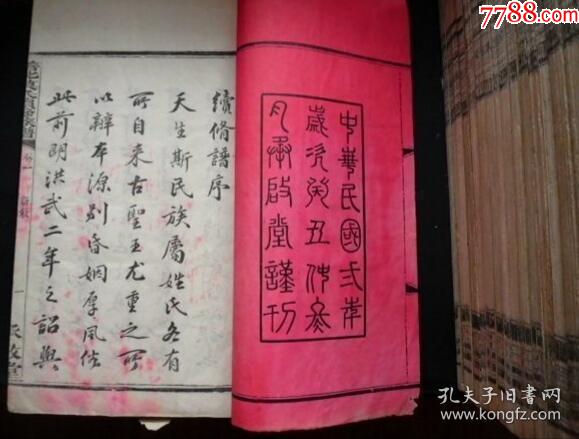 7788.com
中華民國弍年
歲次癸丑仲冬
月承啟堂謹刊
續修譜序
天生斯民族屬姓氏各有
所自来古聖王尤重之所
以辨本源別昏姻厚風俗
此前明洪武二年之詔與
卷一
一
孔夫子旧书网